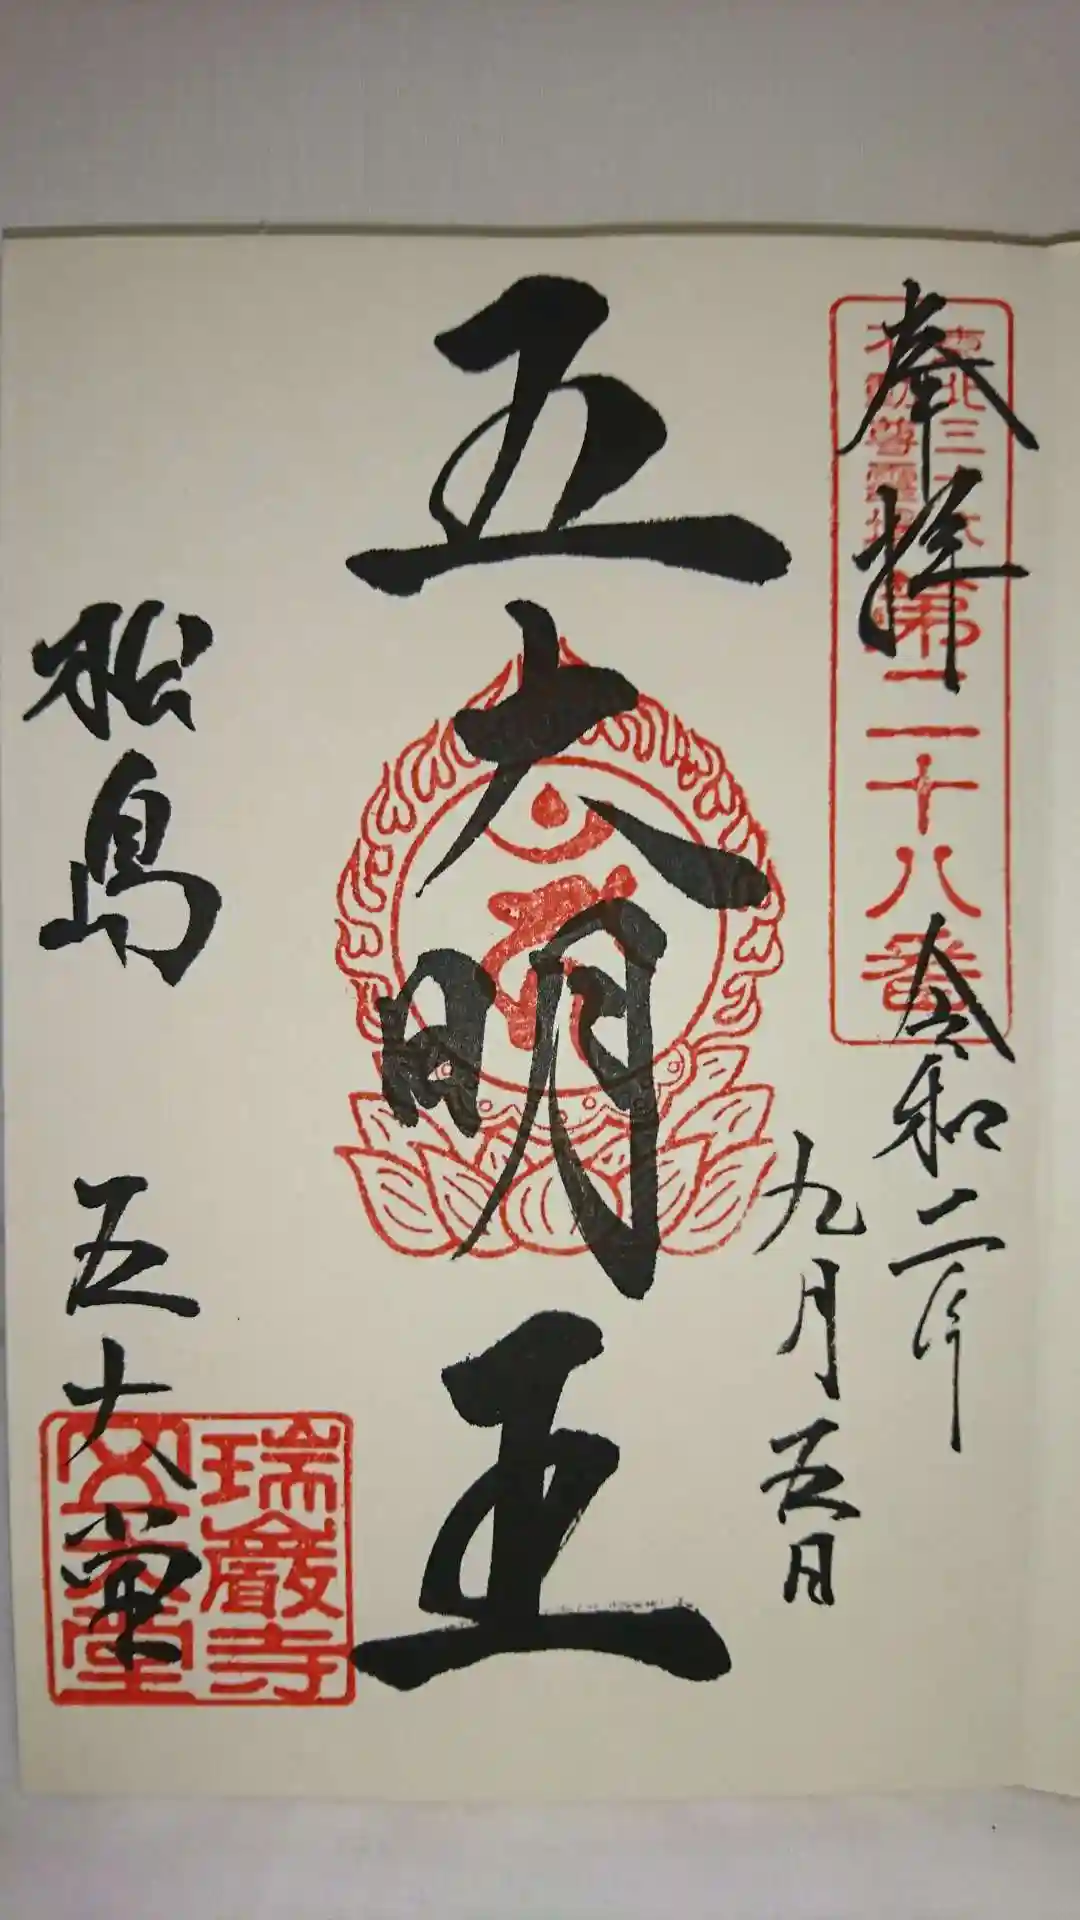 奉拝
東北三十六
不動尊霊場
第二十八番
令和二年
九月五日
五大明王
松島 五大堂
瑞巖寺
五大堂